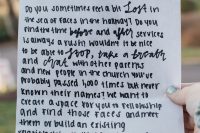 Do you sometimes feel a bit Lost in
the sea of faces in the hallway? Do you
find the time before and after services
is always a rush? Wouldn't it be nice
to be able to stop, take a breath
and chat with other parents
and new people in the church you've
probably passed 1,000 times but never
known their names? We want to
create a space for you to fellowship
and find those faces and meet
them or build an existing